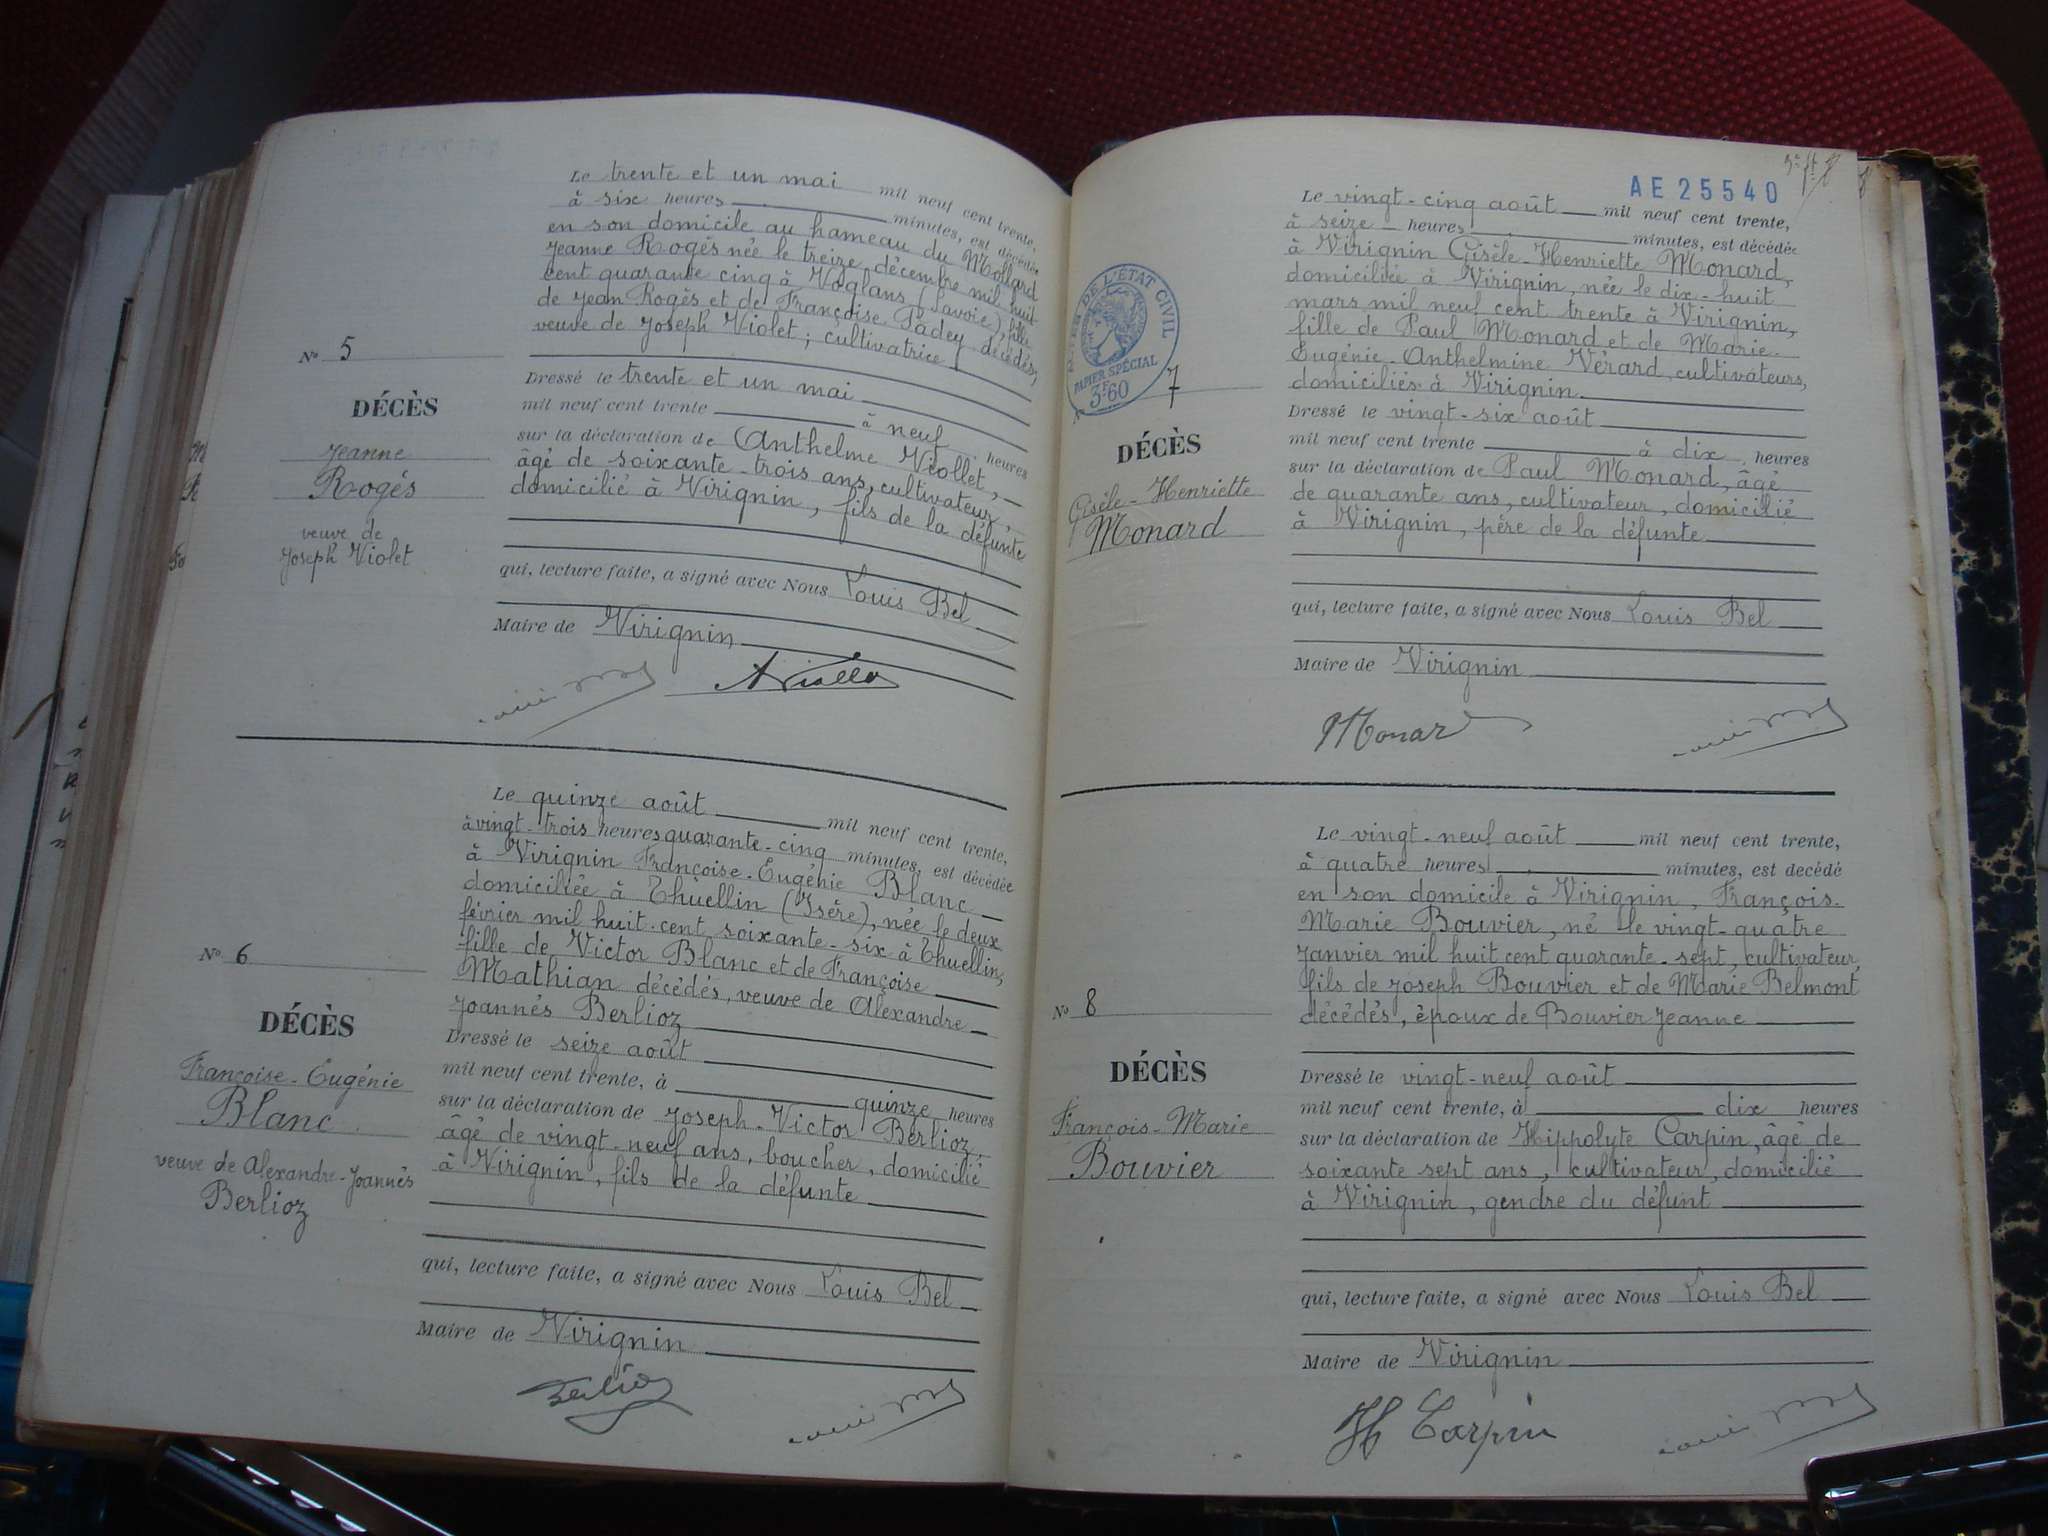 Le trente et un mai mil neuf cent trente,
à six heures minutes, est décédée
en son domicile au hameau du Mollard
Jeanne Rogès née le treize décembre mil huit
cent quarante cinq à Voglans (Savoie), fille
de Jean Rogès et de Françoise Padey décédés,
veuve de Joseph Violet ; cultivatrice
N° 5
DÉCÈS
Jeanne
Rogès
veuve de
Joseph Violet
Dressé le trente et un mai
mil neuf cent trente à neuf heures
sur la déclaration de Anthelme Viollet,
âgé de soixante-trois ans, cultivateur,
domicilié à Virignin, fils de la défunte
qui, lecture faite, a signé avec Nous Louis Bel
Maire de Virignin
A Viollet
Le quinze août mil neuf cent trente,
à vingt-trois heures quarante-cinq minutes, est décédée
à Virignin Françoise-Eugénie Blanc
domiciliée à Thuellin (Isère), née le deux
février mil huit cent soixante-six à Thuellin,
fille de Victor Blanc et de Françoise
Mathian décédés, veuve de Alexandre
Joannès Berlioz
N° 6
DÉCÈS
Françoise-Eugénie
Blanc
veuve de Alexandre-Joannès
Berlioz
Dressé le seize août
mil neuf cent trente, à quinze heures
sur la déclaration de Joseph-Victor Berlioz,
âgé de vingt-neuf ans, boucher, domicilié
à Virignin, fils de la défunte
qui, lecture faite, a signé avec Nous Louis Bel
Maire de Virignin
Berlioz
AE 25540
Le vingt-cinq août mil neuf cent trente,
à seize heures minutes, est décédée
à Virignin Gisèle-Henriette Monard,
domiciliée à Virignin, née le dix-huit
mars mil neuf cent trente à Virignin,
fille de Paul Monard et de Marie-
Eugénie-Anthelmine Vérard, cultivateurs,
domiciliés à Virignin
DE L'ÉTAT CIVIL
PAPIER SPÉCIAL
3F60
N° 7
DÉCÈS
Gisèle-Henriette
Monard
Dressé le vingt-six août
mil neuf cent trente à dix heures
sur la déclaration de Paul Monard, âgé
de quarante ans, cultivateur, domicilié
à Virignin, père de la défunte
qui, lecture faite, a signé avec Nous Louis Bel
Maire de Virignin
Monard
Le vingt-neuf août mil neuf cent trente,
à quatre heures minutes, est decédé
en son domicile à Virignin, François-
Marie Bouvier, né le vingt-quatre
Janvier mil huit cent quarante-sept, cultivateur,
fils de Joseph Bouvier et de Marie Belmont
décédés, époux de Bouvier Jeanne
N° 8
DÉCÈS
François-Marie
Bouvier
Dressé le vingt-neuf août
mil neuf cent trente, à dix heures
sur la déclaration de Hippolyte Carpin, âgé de
soixante sept ans, cultivateur, domicilié
à Virignin, gendre du défunt
qui, lecture faite, a signé avec Nous Louis Bel
Maire de Virignin
H Carpin